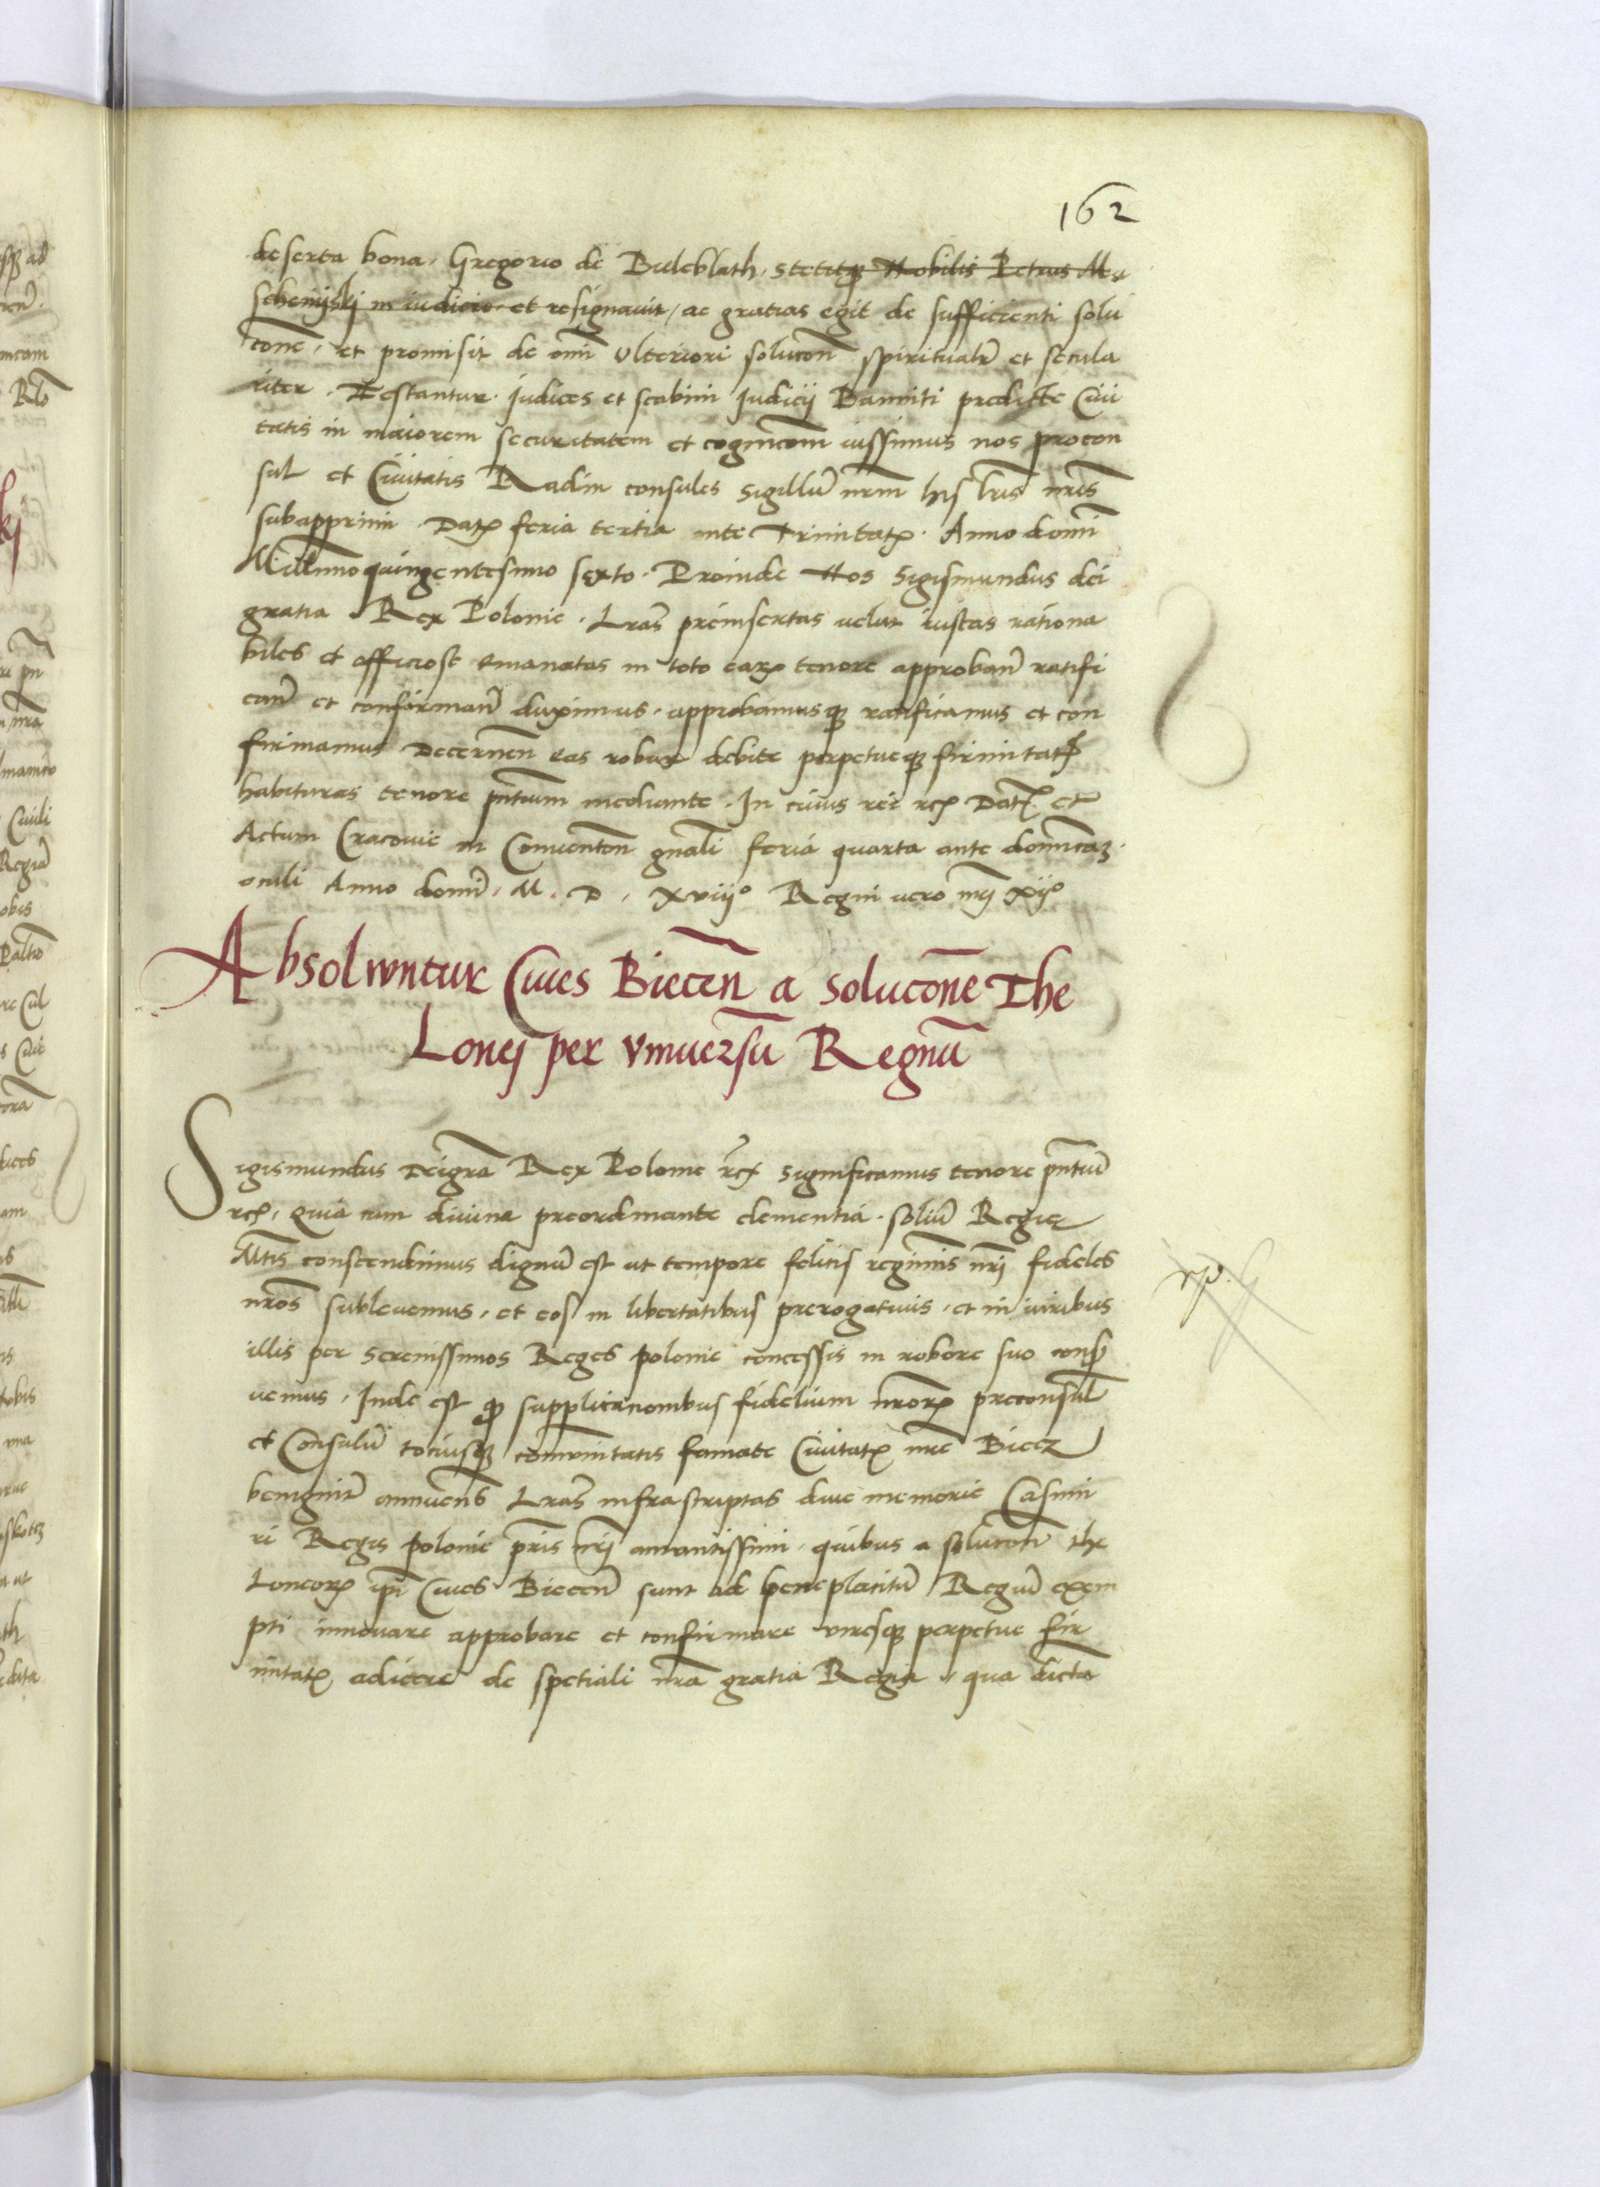 162
deserta bona. Gregorio de Buleblath. stetitq3 Nobilis Petrus Me
schenijski in iudicio et resignauit / ac gratias egit de sufficienti solu
cone, et promisit de omi vlteriori solucon spiritualr et secula
riter. Testantur iudices et scabini iudicij Banniti predicte Ciui
tatis in maiorem securitatem et cognicom iussimus nos procon
sul et Ciuitatis Radim consules sigillu nrm his lris nris
subapprimi. Dat feria tertia ante Trinitat. Anno domi
Millimo quingentesimo sexto. Proinde Nos Sigismundus dei
gratia Rex Polonie. Lras preinsertas velut iustas rationa
biles et officiose emanatas in toto earx tenore approban ratifi
can et confirman duximus. approbamusq3 ratificamus et con
firmamus Decernen eas robur debite perpetueq3 firmitatis
habituras tenore pntium mediante. In cuius rei rc Dat et
Actum Cracouie in Conuenton gnali feria quarta ante domicam
oculi Anno domi. M. D. xviijº Regni vero nri xijº
Absoluuntur Ciues Biecen a solucone The
Lonej per vniuersu Regnu
Sigismundus Dei gra Rex Polonie rc significamus tenore pntiu
rc. Quia cum diuina preordinante clementia. soliu Regie
Mtis conscendimus dignu est ut tempore felicis regiminis nri fideles
nros subleuemus. et eos in libertatibus prerogatiuis. et in iuribus
illis per serenissimos Reges polonie concessis in robore suo conser
uemus. Inde est q supplicationibus fidelium nrorx preconsul
et Consulu tociusq3 comunitatis famate Ciuitat nre Biecz
benignitr annuens Lras infrascriptas diue memorie Casimi
ri Regis polonie pris nri amantissimi. quibus a solucon the
Loneorx ipi Ciues Biecen sunt ad beneplacitu Regiu exem
pti innouare approbare et confirmare viresq3 perpetue fir
mitat adiicere de spetiali nra gratia Regia. qua dicta